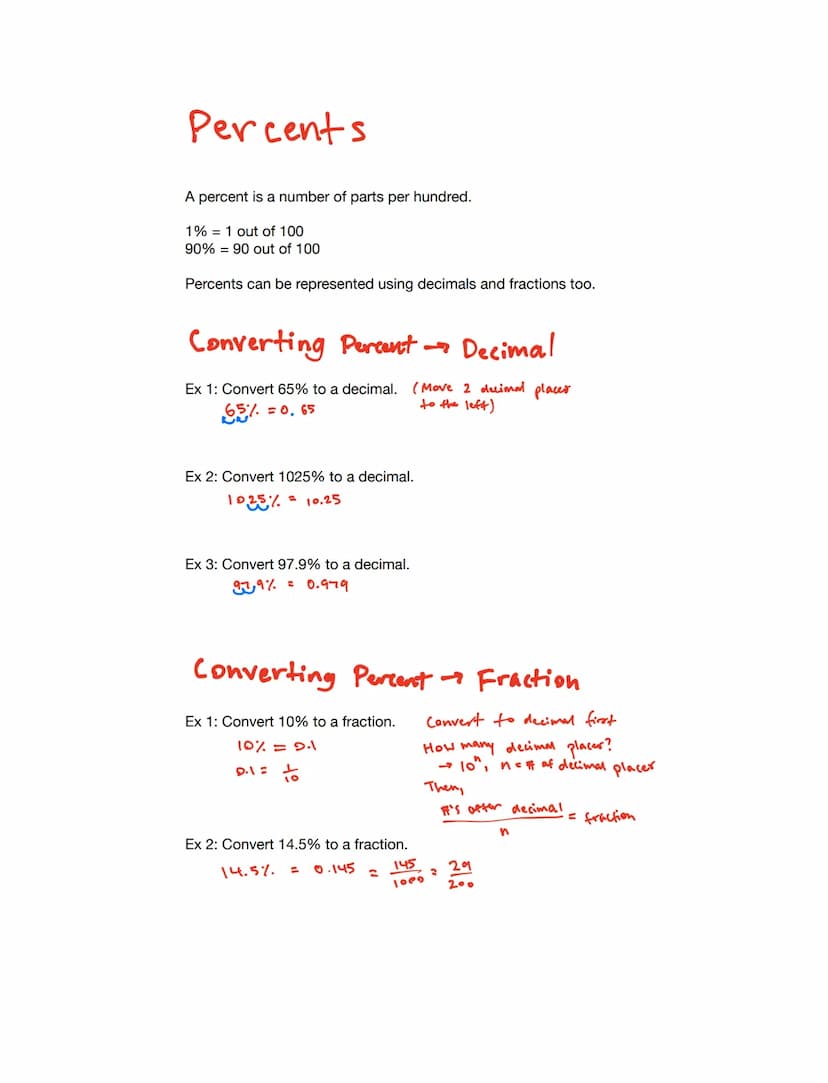 Percents
A percent is a number of parts per hundred.
1% = 1 out of 100
90% = 90 out of 100
Percents can be represented using decimals and fractions too.
Converting Percent → Decimal
Ex 1: Convert 65% to a decimal. (Move 2 decimal places
65% = 0.65 to the left)
Ex 2: Convert 1025% to a decimal.
1025% = 10.25
Ex 3: Convert 97.9% to a decimal.
97.9% = 0.979
Converting Percent → Fraction
Ex 1: Convert 10% to a fraction. Convert to decimal first
10% = 0.1 How many decimal places?
0.1 = 1/10 → 10ⁿ, n = # of decimal places
Then,
#'s after decimal / n = fraction
Ex 2: Convert 14.5% to a fraction.
14.5% = 0.145 = 145/1000 = 29/200